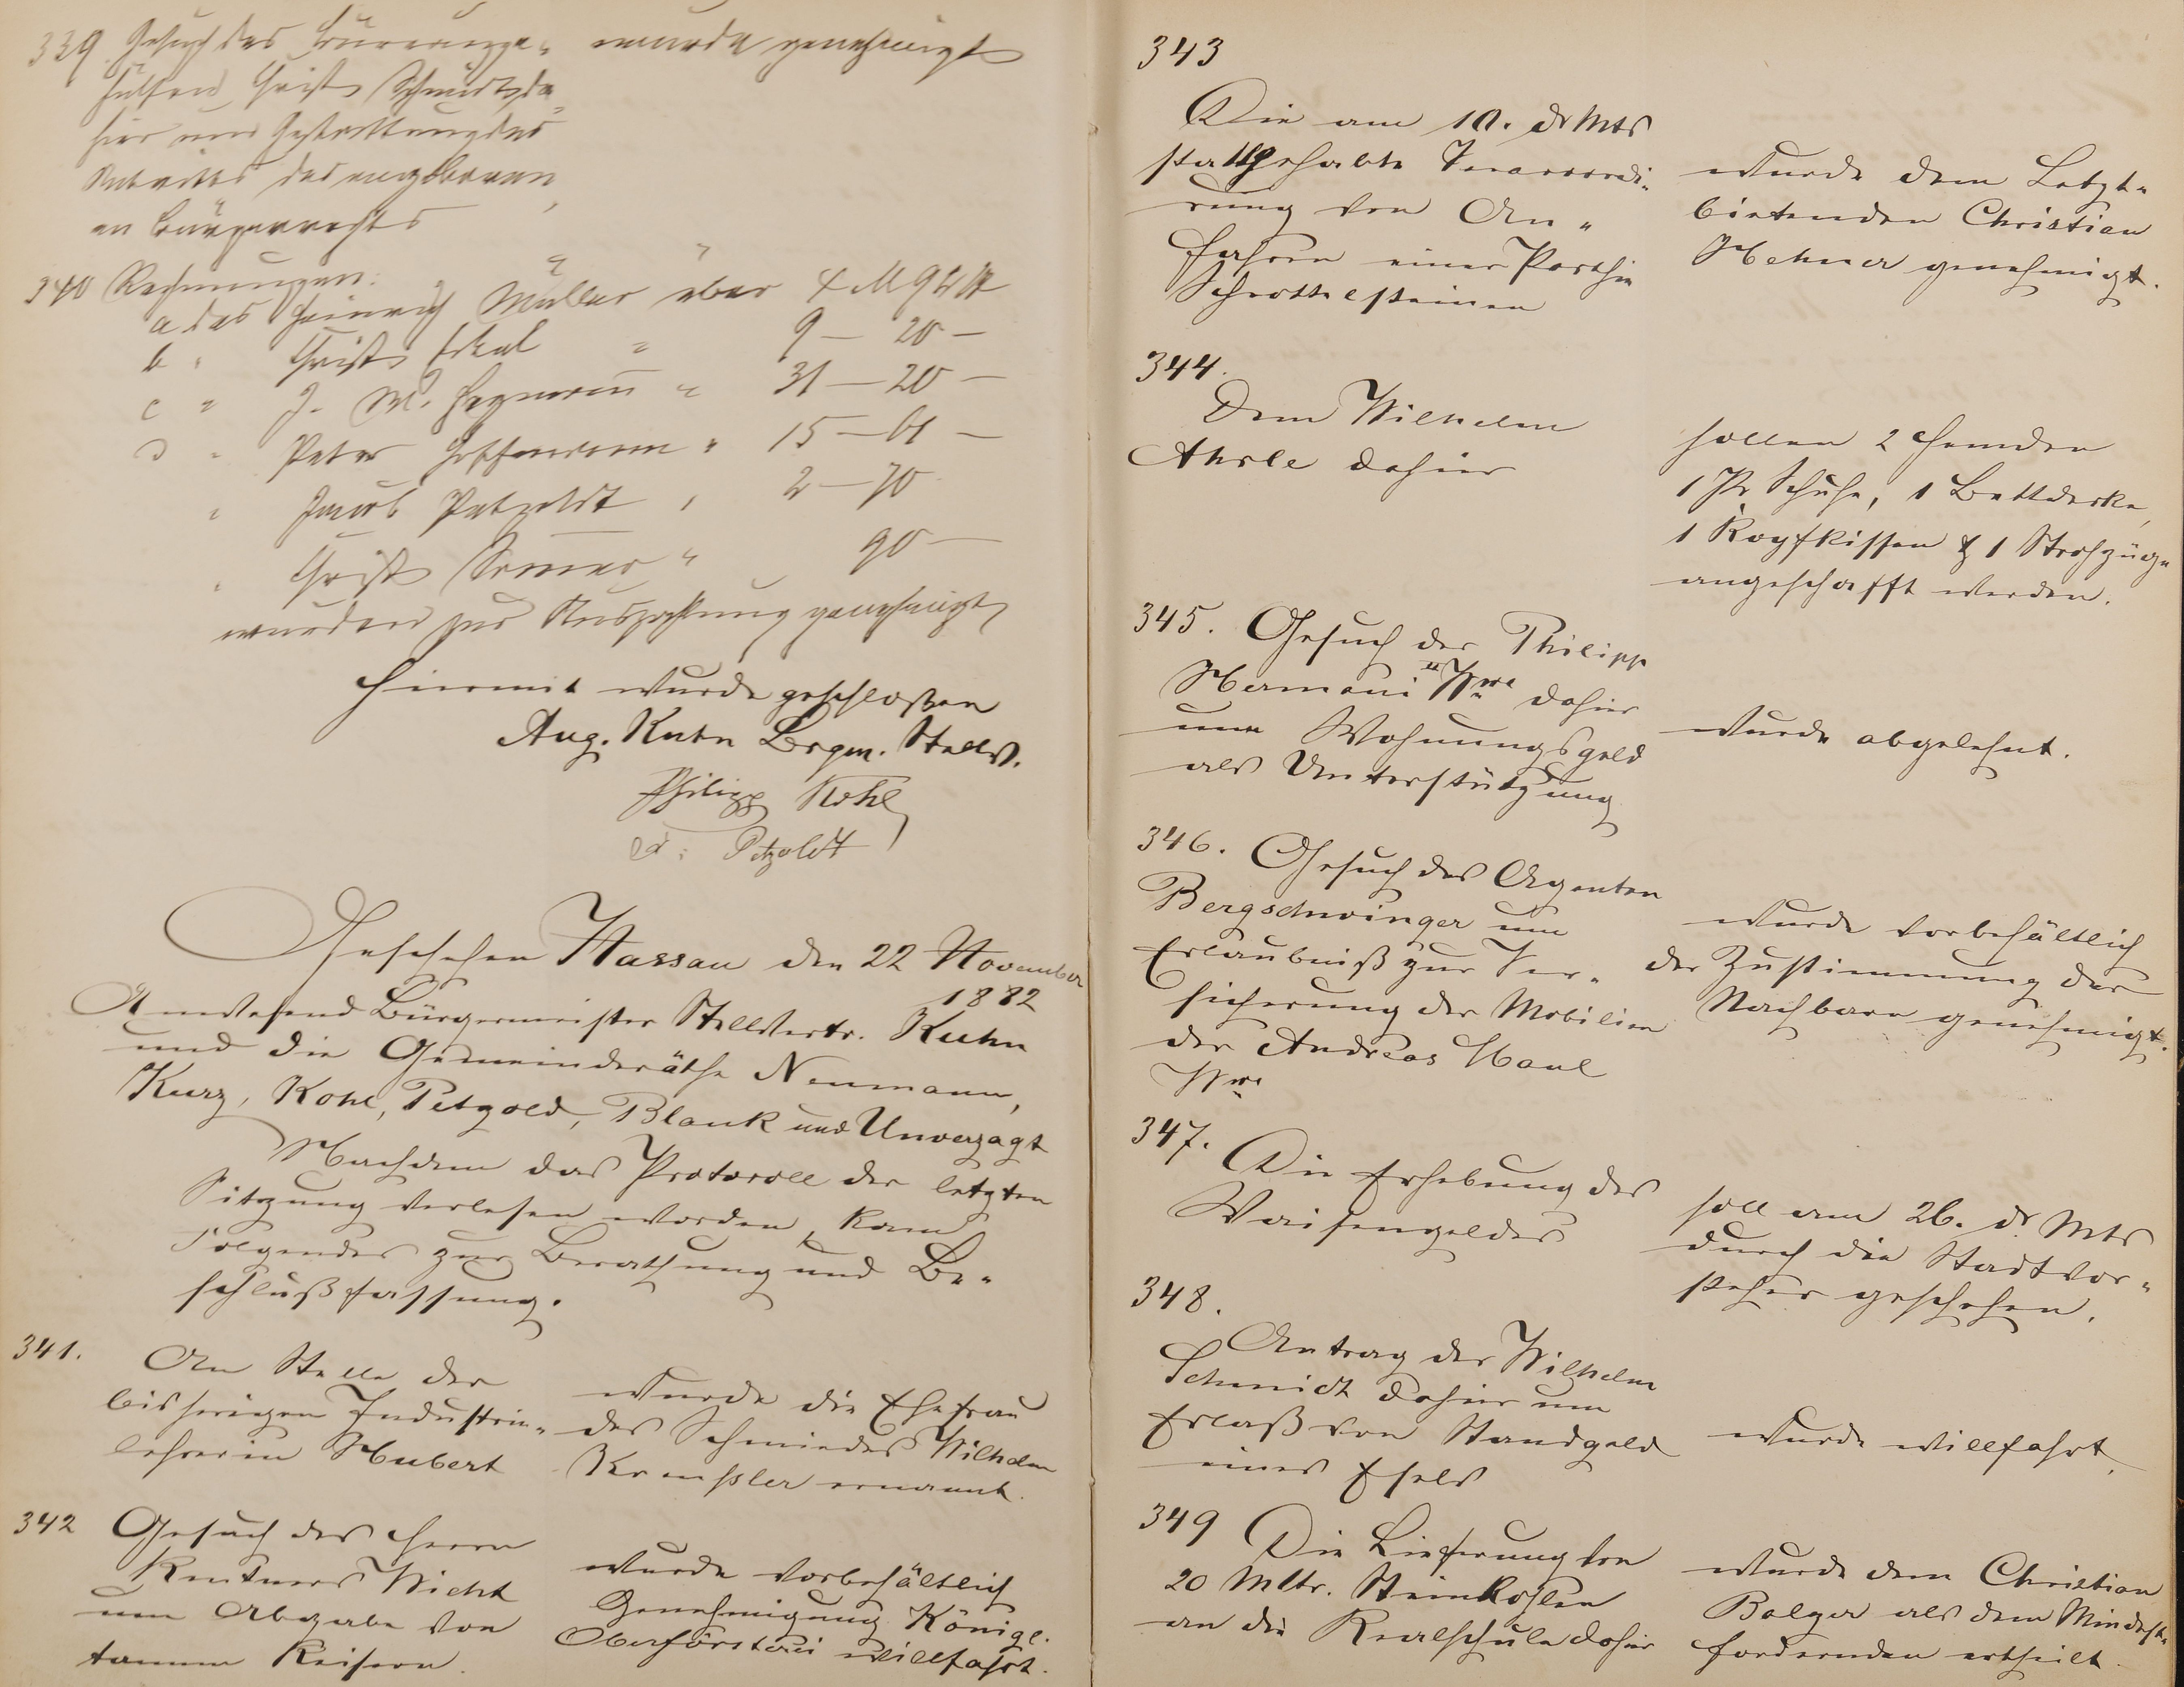 339. Gesuch des Bureauge- wurde genehmigt
hülfen Christ. Schmidt da-
hier um Gestattung des
Antritts des angebornen
en Bürgerrechts
340 Rechnungen.
a. des Heinrich Müller über 4 M 92 ₰
b " Christ. Erkel " 9 — 20 —
c " J. W. Hegmann " 31 — 20 —
d " Peter Hoffmann " 15 — 61 —
" Jacob Petzoldt " 2 — 70
" Christ. Sommer " 90 —
wurden zur Auszahlung genehmigt
Hiermit wurde geschloßen
Aug. Kuhn Brgm. Stellv.
Philipp Kohl
Petzoldt
Geschehen Nassau den 22 November
1882
Anwesend Bürgermeister Stellvertr. Kuhn
und die Gemeinderäthe Neumann,
Kurz, Kohl, Petzold, Blank und Unverzagt
Nachdem das Protocoll der letzten
Sitzung verlesen worden, kam
Folgendes zur Berathung und Be-
schlußfassung.
341. An Stelle der
bisherigen Industrie-
lehrerin Hubert
wurde die Ehefrau
des Schmiedes Wilhelm
ernannt.
342 Gesuch des Herrn
Rentners Wicht
um Abgabe von
tannen Reisern.
wurde vorbehältlich
Genehmigung Königl.
Oberförsterei willfahrt.
343
Die am 10. ds Mts
stattgehabte Veraccordi-
rung von An-
fahren einer Parthie
Schrottelsteinen
wurde dem Letzt-
bietenden Christian
Mehner genehmigt.
344.
Dem Wilhelm
Ahrle dahier
sollen 2 Hemden
1 Pr Schuhe, 1 Bettdecke,
1 Kopfkissen & 1 Strohzüge
angeschafft werden.
345. Gesuch der Philipp
Hermani II Wwe dahier
um Wohnungsgeld
als Unterstützung
wurde abgelehnt.
346. Gesuch des Agenten
Bergschwinger um
Erlaubniß zur Ver-
sicherung der Mobilien
der Andreas Haul
Wwe
wurde vorbehältlich
der Zustimmung der
Nachbarn genehmigt.
347.
Die Erhebung des
Waisengeldes
soll am 26. ds. Mts
durch die Stadtvor-
steher geschehen.
348.
Antrag des Wilhelm
Schmidt dahier um
Erlaß von Standgeld
eines Esels
wurde willfahrt.
349 Die Lieferung von
20 Mltr. Steinkohlen
an die Realschule dahier
wurde dem Christian
Balzer als dem Mindest-
fordernden ertheilt.